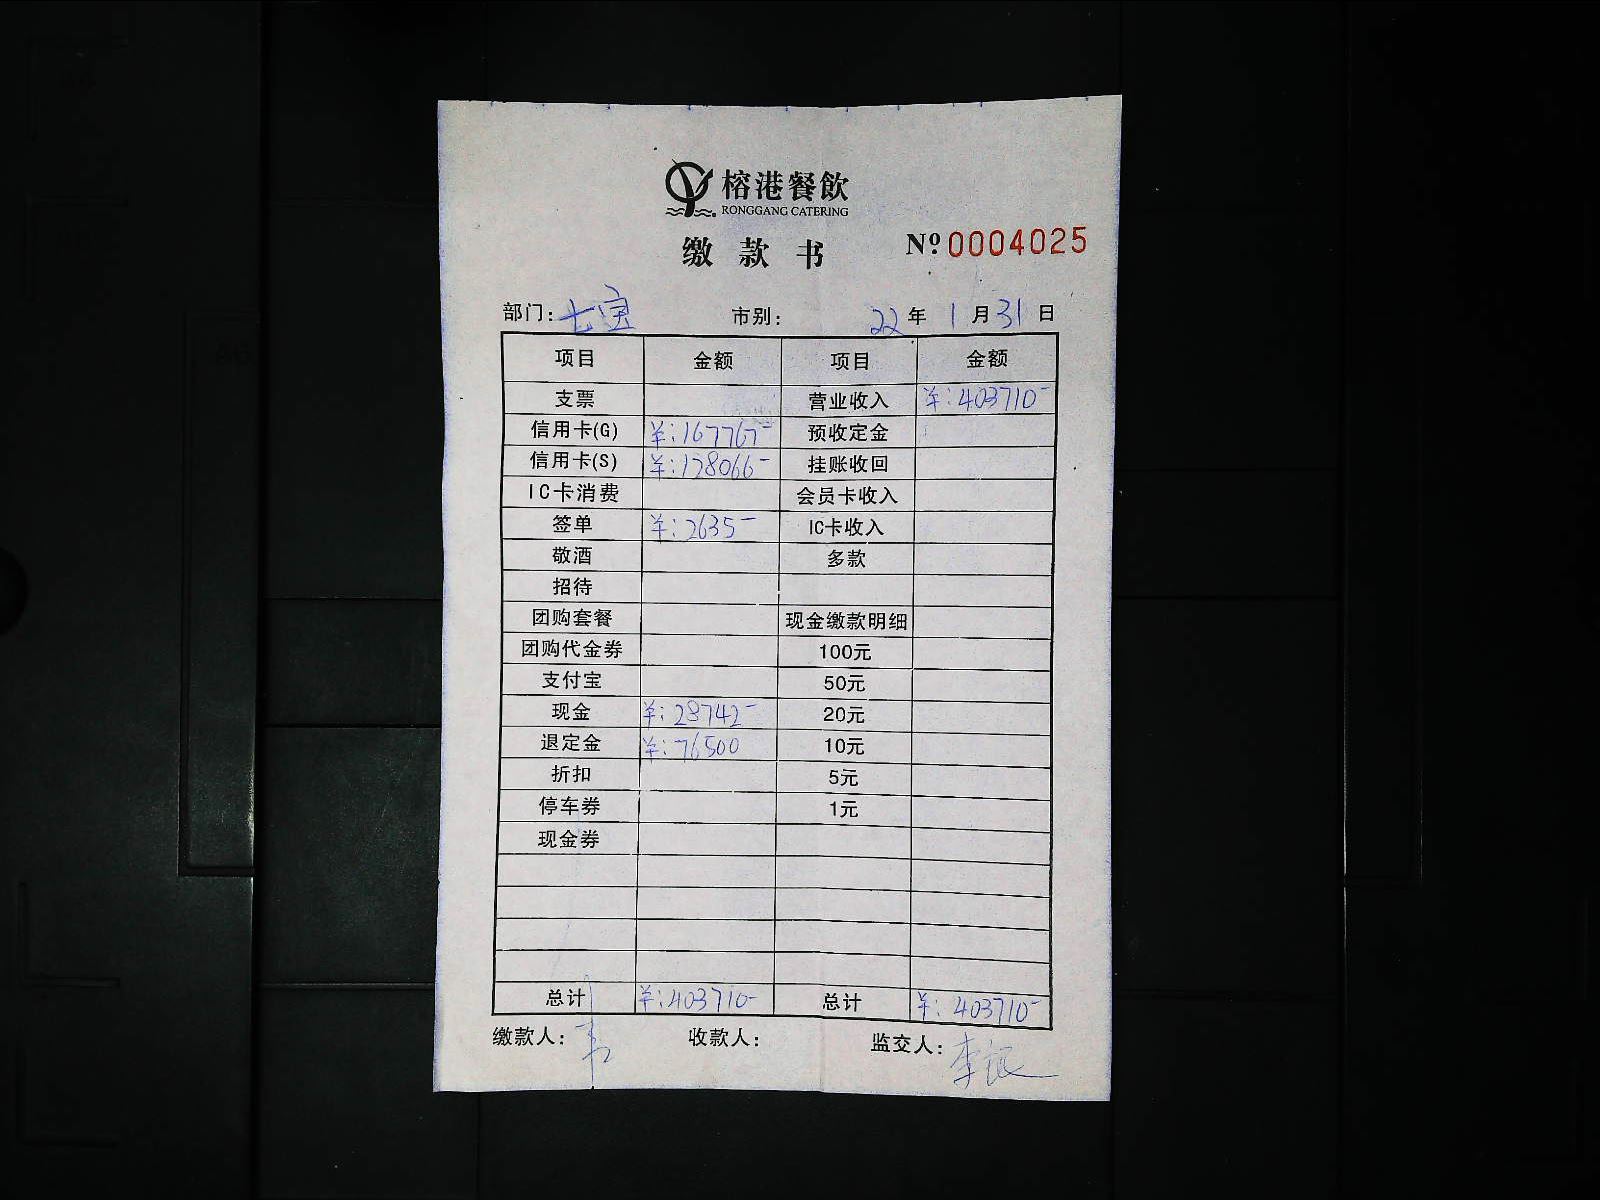 榕港餐飲
RONGGANG CATERING
缴款书 № 0004025
部门: 七宝 市别: 22年1月31日
项目 金额 项目 金额
支票 营业收入 ¥:403710-
信用卡(G) ¥:167767- 预收定金
信用卡(S) ¥:128066- 挂账收回
IC卡消费 会员卡收入
签单 ¥:2635- IC卡收入
敬酒 多款
招待
团购套餐 现金缴款明细
团购代金券 100元
支付宝 50元
现金 ¥:28742- 20元
退定金 ¥:76500 10元
折扣 5元
停车券 1元
现金券
总计 ¥:403710- 总计 ¥:403710-
缴款人: 收款人: 监交人: